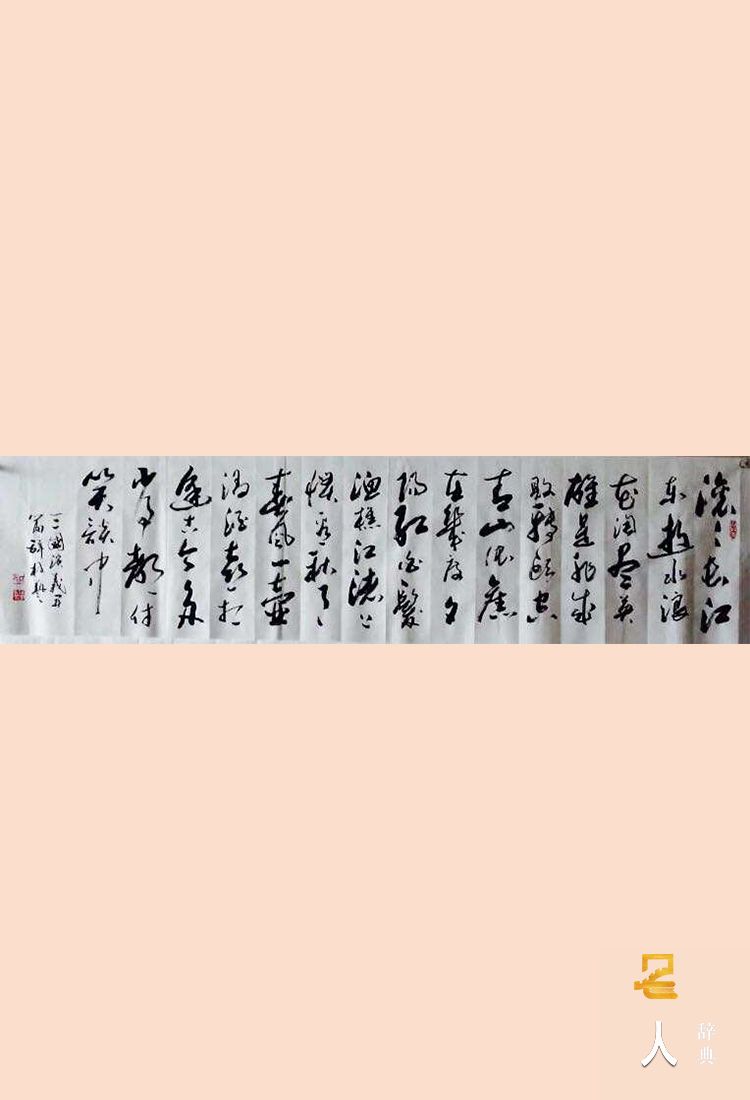 滚滚长江
东逝水浪
花淘尽英
雄是非成
败轉頭空
青山依舊
在幾度夕
阳红白髮
渔樵江渚上
惯看秋月
春風一壶
浊酒喜相
逢古今多
少事都付
笑談中
三國演義开
篇辞
名人
辞典